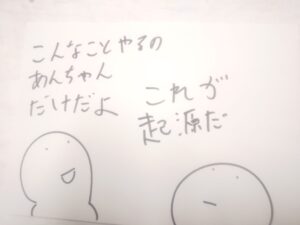 こんなことやるの
あんちゃん
だけだよ
これが
起源だ